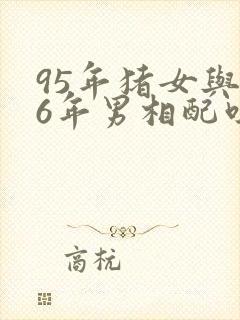 95年猪女與
6年男相配
商杭